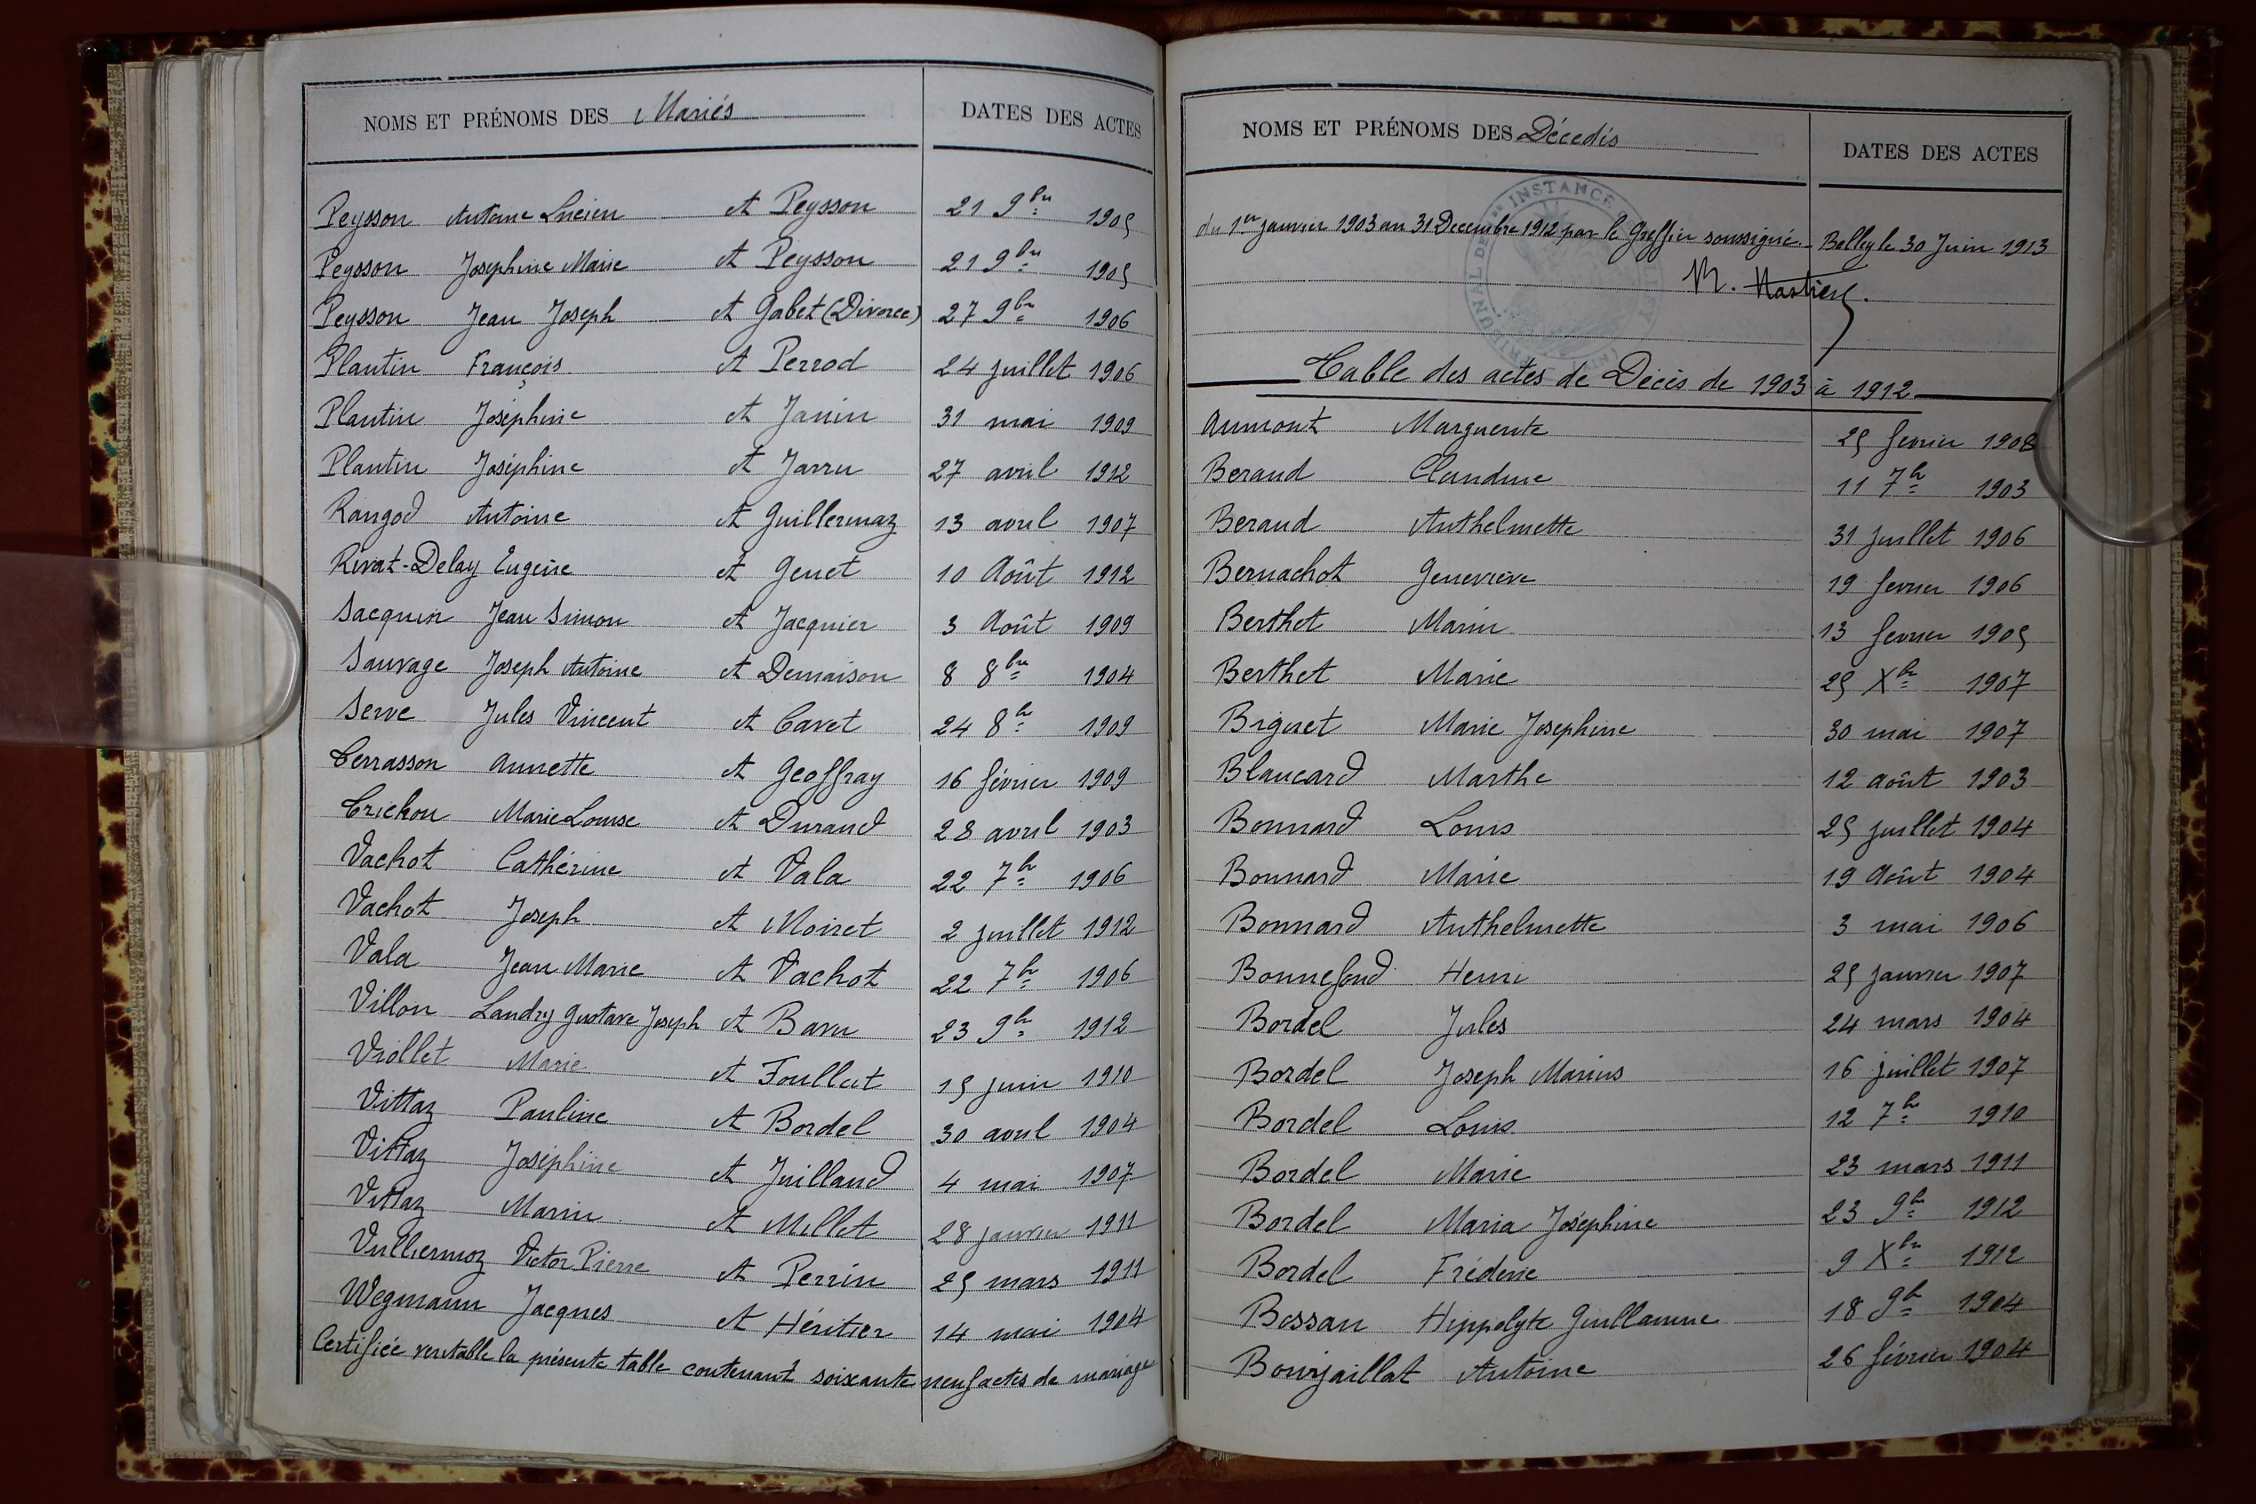 NOMS ET PRÉNOMS DES Mariés DATES DES ACTES
Peysson Antoine Lucien et Peysson 21 9bre 1905
Peysson Josephine Marie et Peysson 21 9bre 1905
Peysson Jean Joseph et Gabet (Divorce) 27 9bre 1906
Plantin François et Perrod 24 juillet 1906
Plantin Joséphine et Janin 31 mai 1909
Plantin Joséphine et Jarru 27 avril 1912
Rangod Antoine et Guillermaz 13 avril 1907
Rivat-Delay Eugène et Genet 10 Août 1912
Sacquin Jean Simon et Jacquier 3 Août 1909
Sauvage Joseph Antoine et Demaison 8 8bre 1904
Serve Jules Vincent et Cavet 24 8bre 1909
Terrasson Annette et Geoffray 16 février 1909
Trichon Marie Louise et Durand 28 avril 1903
Vachot Cathérine et Vala 22 7bre 1906
Vachot Joseph et Moiret 2 juillet 1912
Vala Jean Marie et Vachot 22 7bre 1906
Villon Landry Gustave Joseph et Baru 23 9bre 1912
Viollet Marie et Foullut 15 juin 1910
Vittaz Pauline et Bordel 30 avril 1904
Vittaz Joséphine et Juilland 4 mai 1907
Vittaz Marin et Millet 28 janvier 1911
Vulliermoz Victor Pierre et Perrin 25 mars 1911
Wegmann Jacques et Héritier 14 mai 1904
Certifiée veritable la présente table contenant soixante neuf actes de mariage
NOMS ET PRÉNOMS DES Décedés DATES DES ACTES
du 1er janvier 1903 au 31 Decembre 1912 par le Greffier soussigné. Belley le 30 Juin 1913
Table des actes de Décès de 1903 à 1912
Aumont Marguerite 25 fevrier 1908
Beraud Claudine 11 7bre 1903
Beraud Anthelmette 31 juillet 1906
Bernachot Geneviève 19 fevrier 1906
Berthet Marin 13 fevrier 1905
Berthet Marie 25 Xbre 1907
Biguet Marie Josephine 30 mai 1907
Blancard Marthe 12 août 1903
Bonnard Louis 25 juillet 1904
Bonnard Marie 19 Août 1904
Bonnard Anthelmette 3 mai 1906
Bonnefond Henri 25 janvier 1907
Bordel Jules 24 mars 1904
Bordel Joseph Marius 16 juillet 1907
Bordel Louis 12 7bre 1910
Bordel Marie 23 mars 1911
Bordel Maria Joséphine 23 9bre 1912
Bordel Fréderic 9 Xbre 1912
Bossan Hippolyte Guillaume 18 9bre 1904
Bourjaillat Antoine 26 février 1904